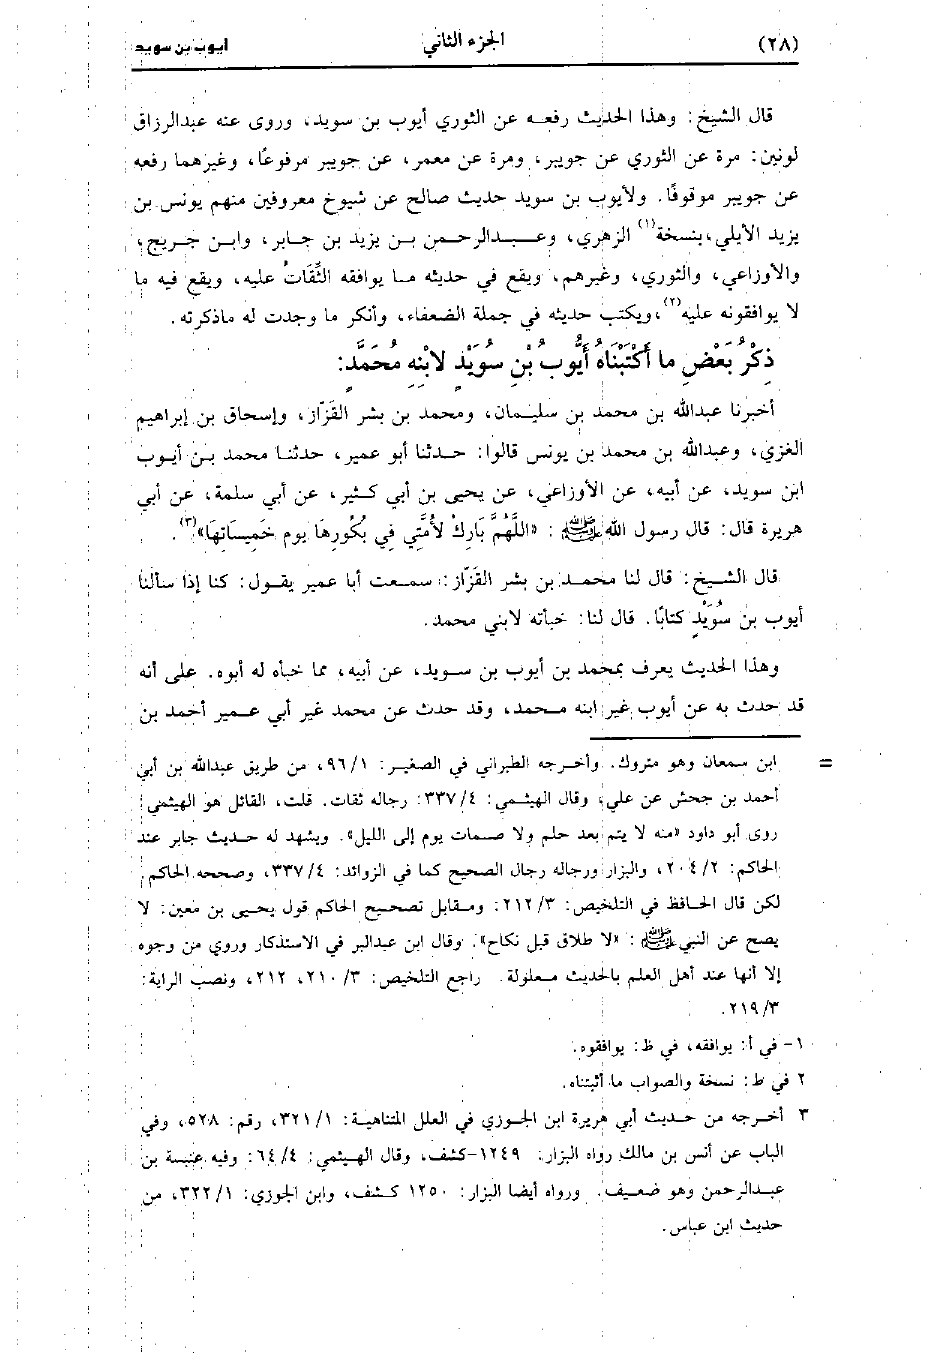 (٢٨) الجزء الثاني أيوب بن سويد
قال الشيخ: وهذا الحديث رفعه عن الثوري أيوب بن سويد، وروى عنه عبدالرزاق
لونين: مرة عن الثوري عن جويبر، ومرة عن معمر، عن جويبر مرفوعًا، وغيرهما رفعه
عن جويبر موقوفًا. ولأيوب بن سويد حديث صالح عن شيوخ معروفين منهم يونس بن
يزيد الأيلي، بنسخة(١) الزهري، وعبدالرحمن بن يزيد بن جابر، وابن جريج،
والأوزاعي، والثوري، وغيرهم، ويقع في حديثه ما يوافقه الثِّقَاتُ عليه، ويقع فيه ما
لا يوافقونه عليه(٢)، ويكتب حديثه في جملة الضعفاء، وأنكر ما وجدت له ماذكرته.
ذِكْرُ بَعْضِ ما أَكْتَبْنَاهُ أَيُّوبُ بْنِ سُوَيْدٍ لابْنِهِ مُحَمَّدٍ:
أخبرنا عبدالله بن محمد بن سليمان، ومحمد بن بشر القَزّاز، وإسحاق بن إبراهيم
الغزي، وعبدالله بن محمد بن يونس قالوا: حدثنا أبو عمير، حدثنا محمد بن أيوب
ابن سويد، عن أبيه، عن الأوزاعي، عن يحيى بن أبي كثير، عن أبي سلمة، عن أبي
هريرة قال: قال رسول الله ﷺ: «اللَّهُمَّ بَارِكْ لأُمَّتِي فِي بُكُورِهَا يوم خَمِيسَاتِهَا»(٣).
قال الشيخ: قال لنا محمد بن بشر القَزّاز: سمعت أبا عمير يقول: كنا إذا سألنا
أيوب بن سُوَيْدٍ كتابًا. قال لنا: خبأته لابني محمد.
وهذا الحديث يعرف بمحمد بن أيوب بن سويد، عن أبيه، مما خبأه له أبوه. على أنه
قد حدث به عن أيوب غير ابنه محمد، وقد حدث عن محمد غير أبي عمير أحمد بن
= ابن سمعان وهو متروك. وأخرجه الطبراني في الصغير: ٩٦/١، من طريق عبدالله بن أبي
أحمد بن جحش عن علي، وقال الهيثمي: ٣٣٧/٤: رجاله ثقات. قلت، القائل هو الهيثمي
روى أبو داود «منه لا يتم بعد حلم ولا صمات يوم إلى الليل». ويشهد له حديث جابر عند
الحاكم: ٢٠٤/٢، والبزار ورجاله رجال الصحيح كما في الزوائد: ٣٣٧/٤، وصححه الحاكم
لكن قال الحافظ في التلخيص: ٢١٢/٣: ومقابل تصحيح الحاكم قول يحيى بن معين: لا
يصح عن النبي ﷺ: «لا طلاق قبل نكاح». وقال ابن عبدالبر في الاستذكار وروي من وجوه
إلا أنها عند أهل العلم بالحديث معلولة. راجع التلخيص: ٢١٠/٣، ٢١٢، ونصب الراية:
٢١٩/٣.
١- في أ: يوافقه، في ظ: يوافقوه.
٢ في ط: نسخة والصواب ما أثبتناه.
٣ أخرجه من حديث أبي هريرة ابن الجوزي في العلل المتناهية: ٣٢١/١، رقم: ٥٢٨، وفي
الباب عن أنس بن مالك رواه البزار: ١٢٤٩-كشف، وقال الهيثمي: ٦٤/٤: وفيه عنبسة بن
عبدالرحمن وهو ضعيف. ورواه أيضا البزار: ١٢٥٠ كشف، وابن الجوزي: ٣٢٢/١، من
حديث ابن عباس.